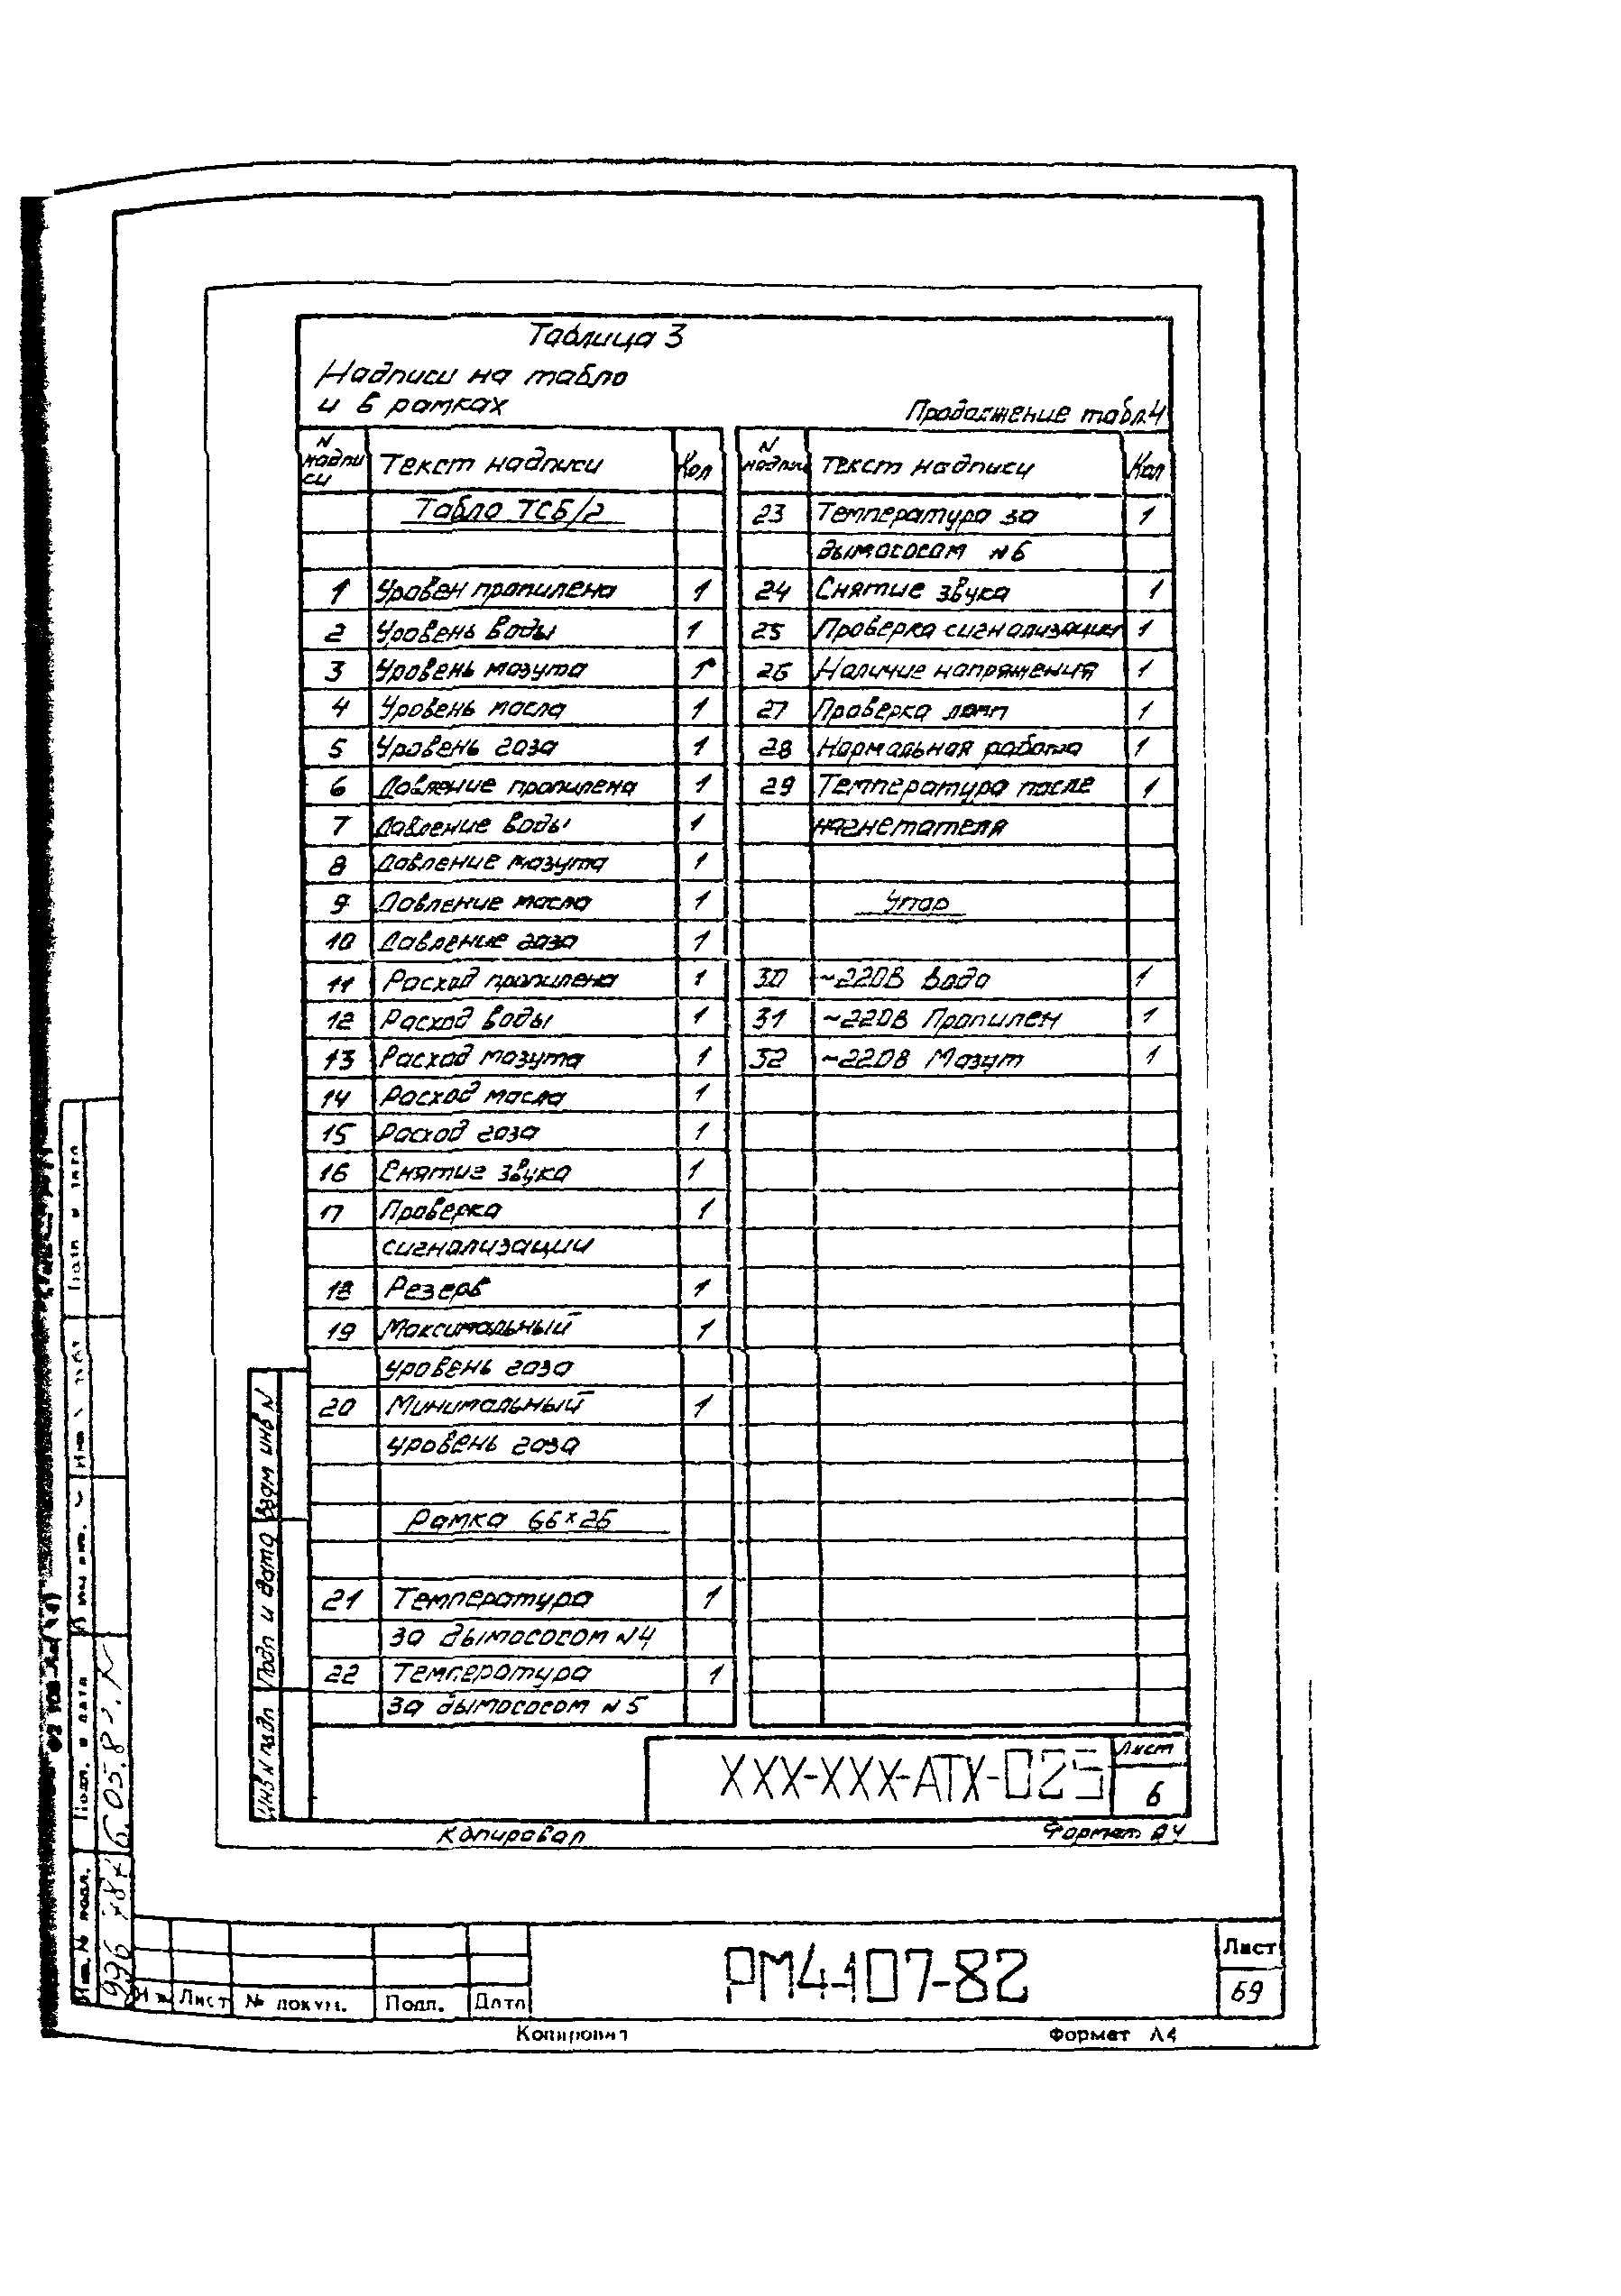 Таблица 3
Надписи на табло
и в рамках
Продолжение табл.4
N надпи си Текст надписи Кол
Табло ТСБ/2
1 Уровен пропилена 1
2 Уровень воды 1
3 Уровень мазута 1
4 Уровень масла 1
5 Уровень газа 1
6 Давление пропилена 1
7 Давление воды 1
8 Давление мазута 1
9 Давление масла 1
10 Давление газа 1
11 Расход пропилена 1
12 Расход воды 1
13 Расход мазута 1
14 Расход масла 1
15 Расход газа 1
16 Снятие звука 1
17 Проверка 1
сигнализации
18 Резерв 1
19 Максимальный 1
уровень газа
20 Минимальный 1
уровень газа
Рамка 66×26
21 Температура 1
за дымососом N4
22 Температура 1
за дымососом N5
N надписи Текст надписи Кол
23 Температура за 1
дымососом N6
24 Снятие звука 1
25 Проверка сигнализации 1
26 Наличие напряжения 1
27 Проверка ламп 1
28 Нормальная работа 1
29 Температура после 1
нагнетателя
Упар
30 ~220В Вода 1
31 ~220В Пропилен 1
32 ~220В Мазут 1
Взам инв N
Подп и дата
Инв N подл
XXX-XXX-АТХ-025
Лист
6
Копировал
Формат А4
Подп. и дата
Инв. № подл.
Лист № докум. Подп. Дата
РМ4-107-82
Лист
69
Копировал
Формат А4